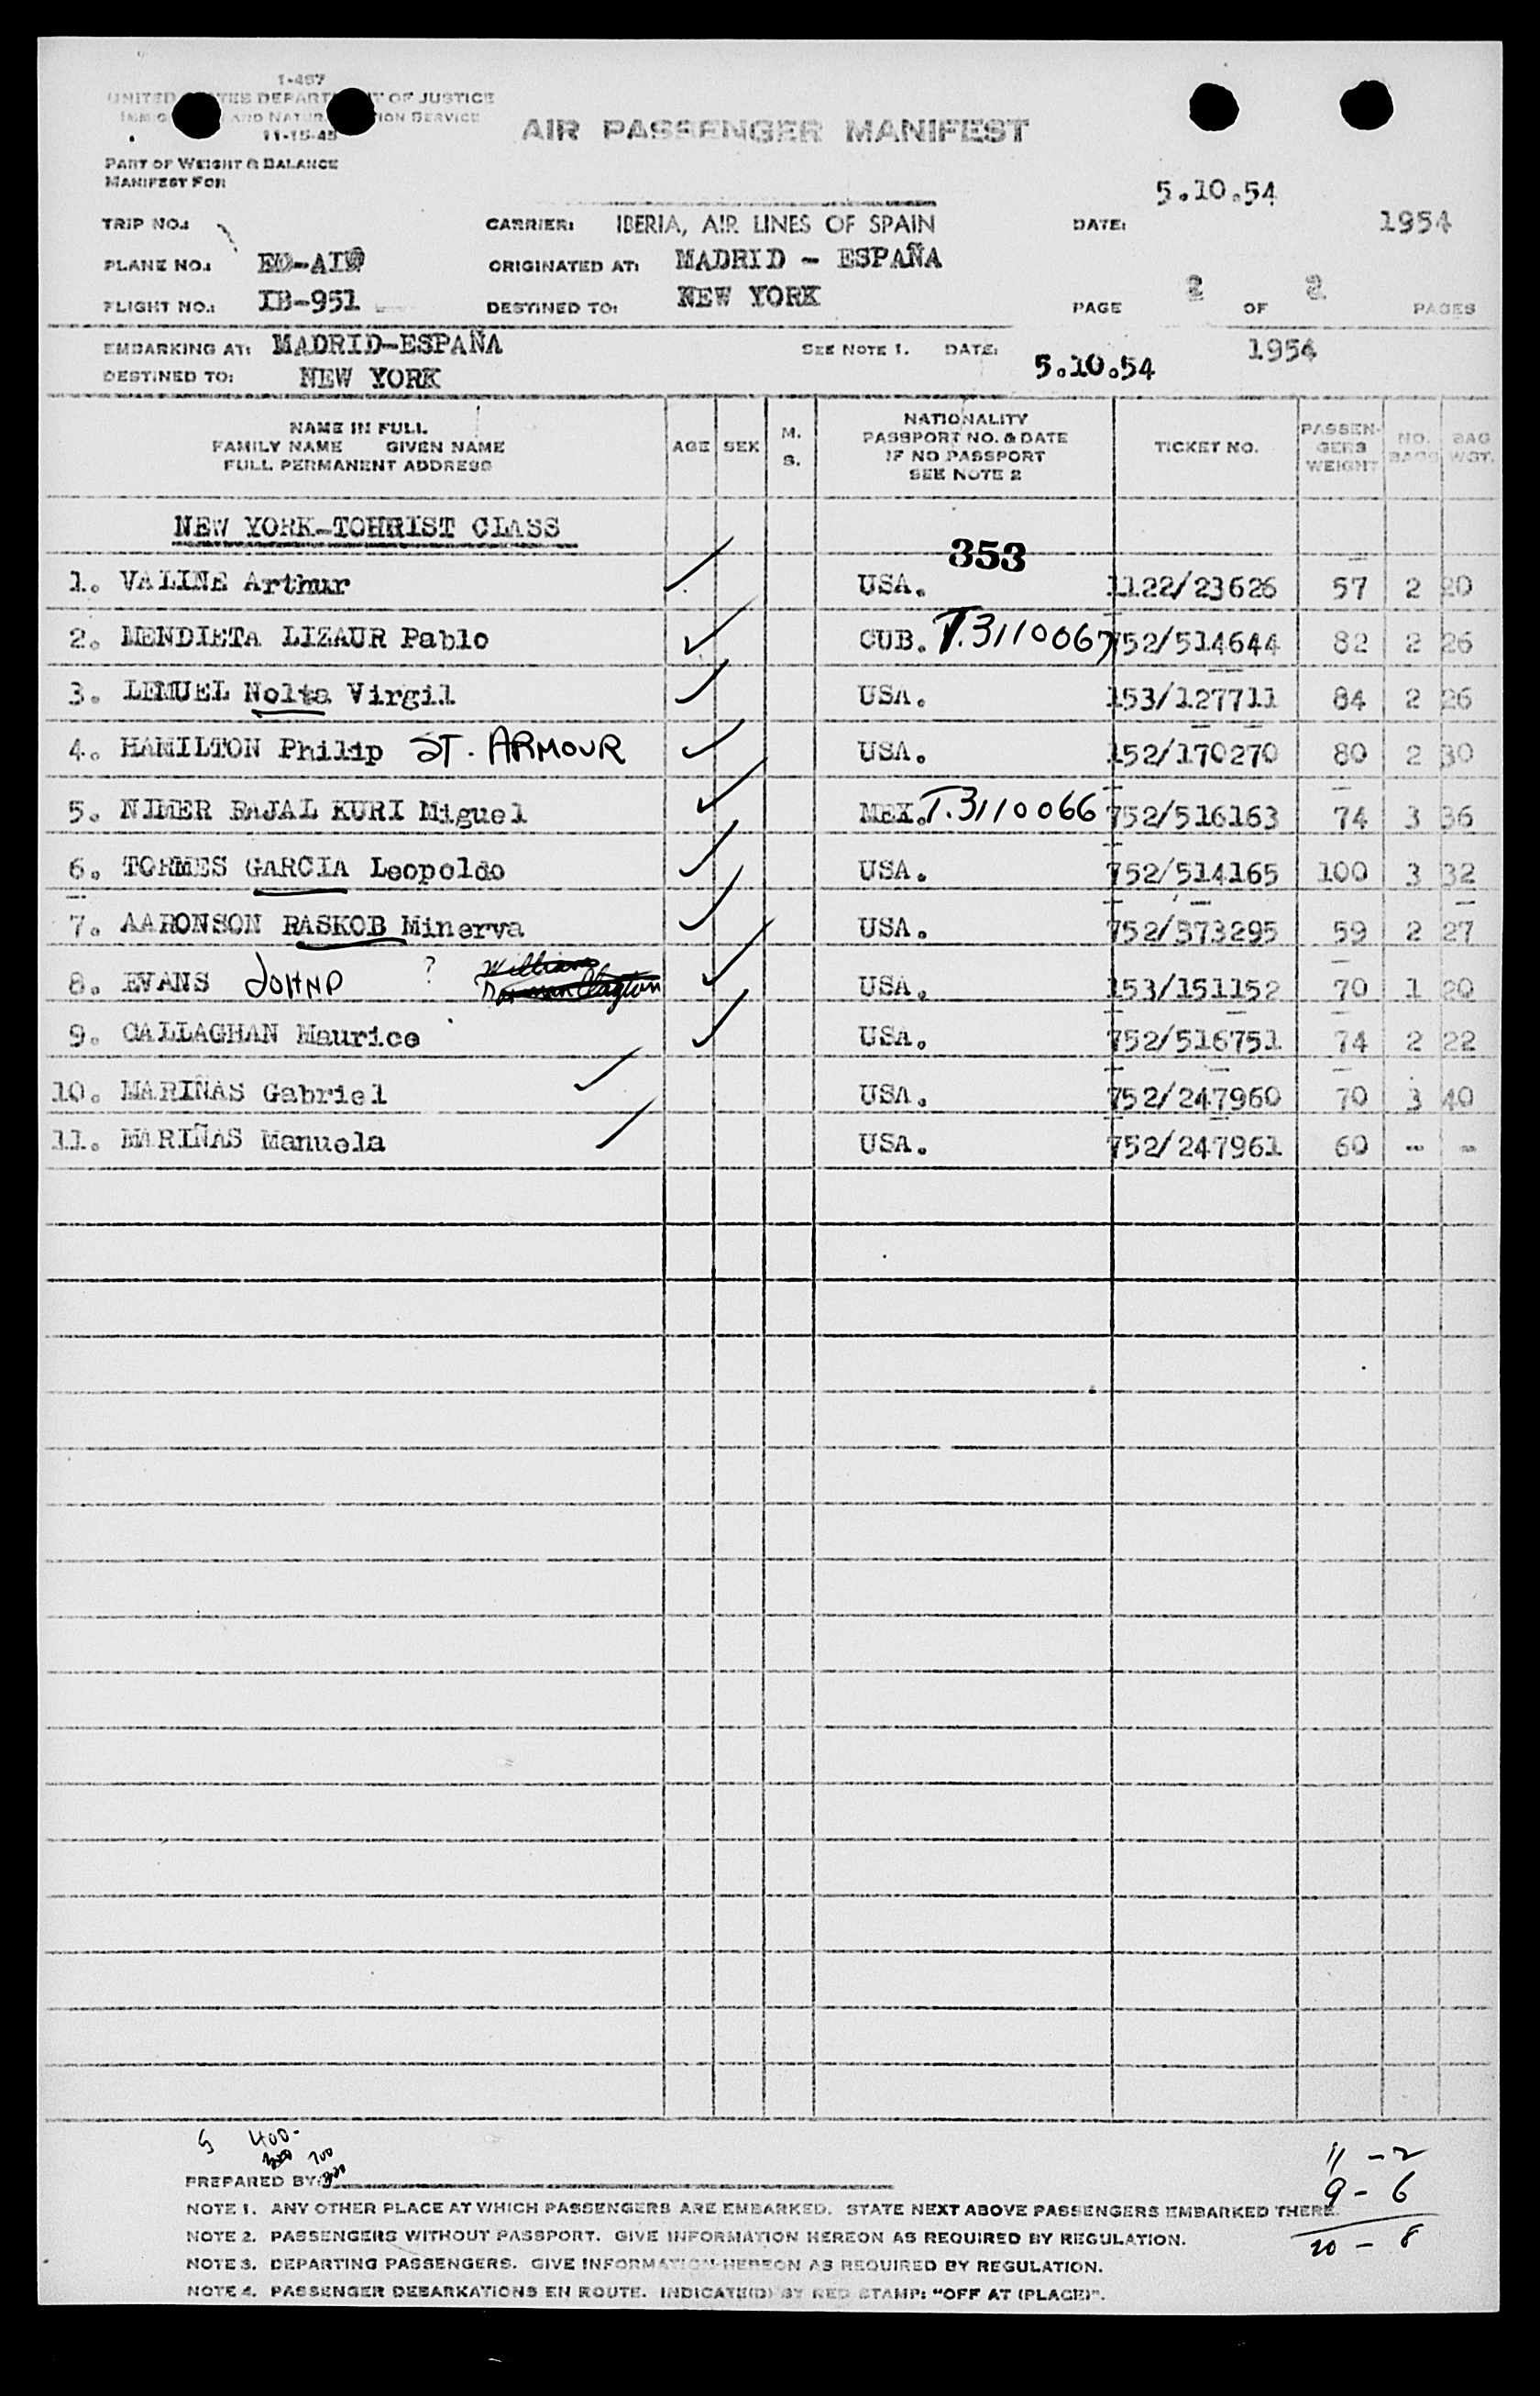 1-467
UNITED STATES DEPARTMENT OF JUSTICE
IMMIGRATION AND NATURALIZATION SERVICE
11-15-45
AIR PASSENGER MANIFEST
PART OF WEIGHT & BALANCE
MANIFEST FOR
5.10.54
TRIP NO.: CARRIER: IBERIA, AIR LINES OF SPAIN DATE: 1954
PLANE NO.: ORIGINATED AT: MADRID - ESPAÑA
FLIGHT NO.: IB-951 DESTINED TO: NEW YORK PAGE 2 OF 2 PAGES
EMBARKING AT: MADRID-ESPAÑA SEE NOTE 1. DATE: 5.10.54 1954
DESTINED TO: NEW YORK
NAME IN FULL
FAMILY NAME GIVEN NAME
FULL PERMANENT ADDRESS
AGE
SEX
M.
S.
NATIONALITY
PASSPORT NO. & DATE
IF NO PASSPORT
SEE NOTE 2
TICKET NO.
PASSEN-
GERS
WEIGHT
NO.
BAGS
BAG
WGT.
NEW YORK-TOHRIST CLASS
353
1. VALINE Arthur USA. 1122/23626 57 2 20
2. MENDIETA LIZAUR Pablo CUB. T.3110067 752/514644 82 2 26
3. LEMUEL Nolta Virgil USA. 153/127711 84 2 26
4. HAMILTON Philip ST. ARMOUR USA. 152/170270 80 2 30
5. NIMER BAJAL KURI Miguel MEX. T.3110066 752/516163 74 3 36
6. TORMES GARCIA Leopoldo USA. 752/514165 100 3 32
7. AARONSON RASKOB Minerva USA. 752/573295 59 2 27
8. EVANS JOHN P ? William Clayton USA. 153/151152 70 1 20
9. CALLAGHAN Maurice USA. 752/516751 74 2 22
10. MARIÑAS Gabriel USA. 752/247960 70 3 40
11. MARIÑAS Manuela USA. 752/247961 60 - -
400-
700
PREPARED BY:
NOTE 1. ANY OTHER PLACE AT WHICH PASSENGERS ARE EMBARKED. STATE NEXT ABOVE PASSENGERS EMBARKED THERE.
NOTE 2. PASSENGERS WITHOUT PASSPORT. GIVE INFORMATION HEREON AS REQUIRED BY REGULATION.
NOTE 3. DEPARTING PASSENGERS. GIVE INFORMATION HEREON AS REQUIRED BY REGULATION.
NOTE 4. PASSENGER DEBARKATIONS EN ROUTE. INDICATE(D) BY RED STAMP: "OFF AT (PLACE)".
11 - 2
9 - 6
20 - 8